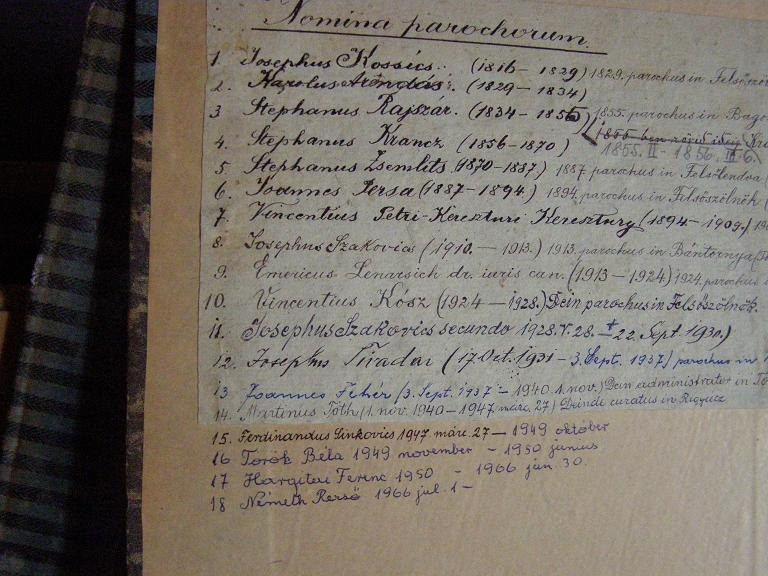 Nomina parochorum.
1. Josephus Kossics. (1816 - 1829) 1829. parochus in Felsőszöl
2. Karolus Arondás. (1829 - 1834)
3 Stephanus Rajszár. (1834 - 1855) 1855. parochus in Bago
1855-ben
4. Stephanus Krancz (1856 - 1870) 1855. II - 1856. III. 6.
5. Stephanus Zsemlits (1870-1887) 1887 parochus in Felsőlendva
6. Joannes Persa (1887 - 1894.) 1894. parochus in Felsőszölnök
7. Vincentius Petri-Kereszturi Keresztury (1894 - 1909.)
8. Josephus Szakovics (1910. - 1913.) 1913. parochus in Bántornya
9. Emericus Lenarsich dr. iuris can. (1913 - 1924) 1924. parochus
10. Vincentius Kósz (1924 - 1928.) Dein parochus in Felsőszölnök.
11. Josephus Szakovics secundo 1928. V. 28. - † 22. Sept. 1930.)
12. Josephus Tivadar (17. Oct. 1931 - 3. Sept. 1937) parochus in
13 Joannes Fehér (3. Sept. 1937 - 1940. 1. nov.) Dein administrator in
14. Martinus Tóth (1. nov. 1940 - 1947. márc. 27) Deinde curatus in Rigyác
15. Ferdinandus Sinkovics 1947. márc. 27 - 1949 október
16 Török Béla 1949 november - 1950 június
17 Hargitai Ferenc 1950 - 1966 jún. 30.
18 Németh Rezső 1966 júl. 1 -